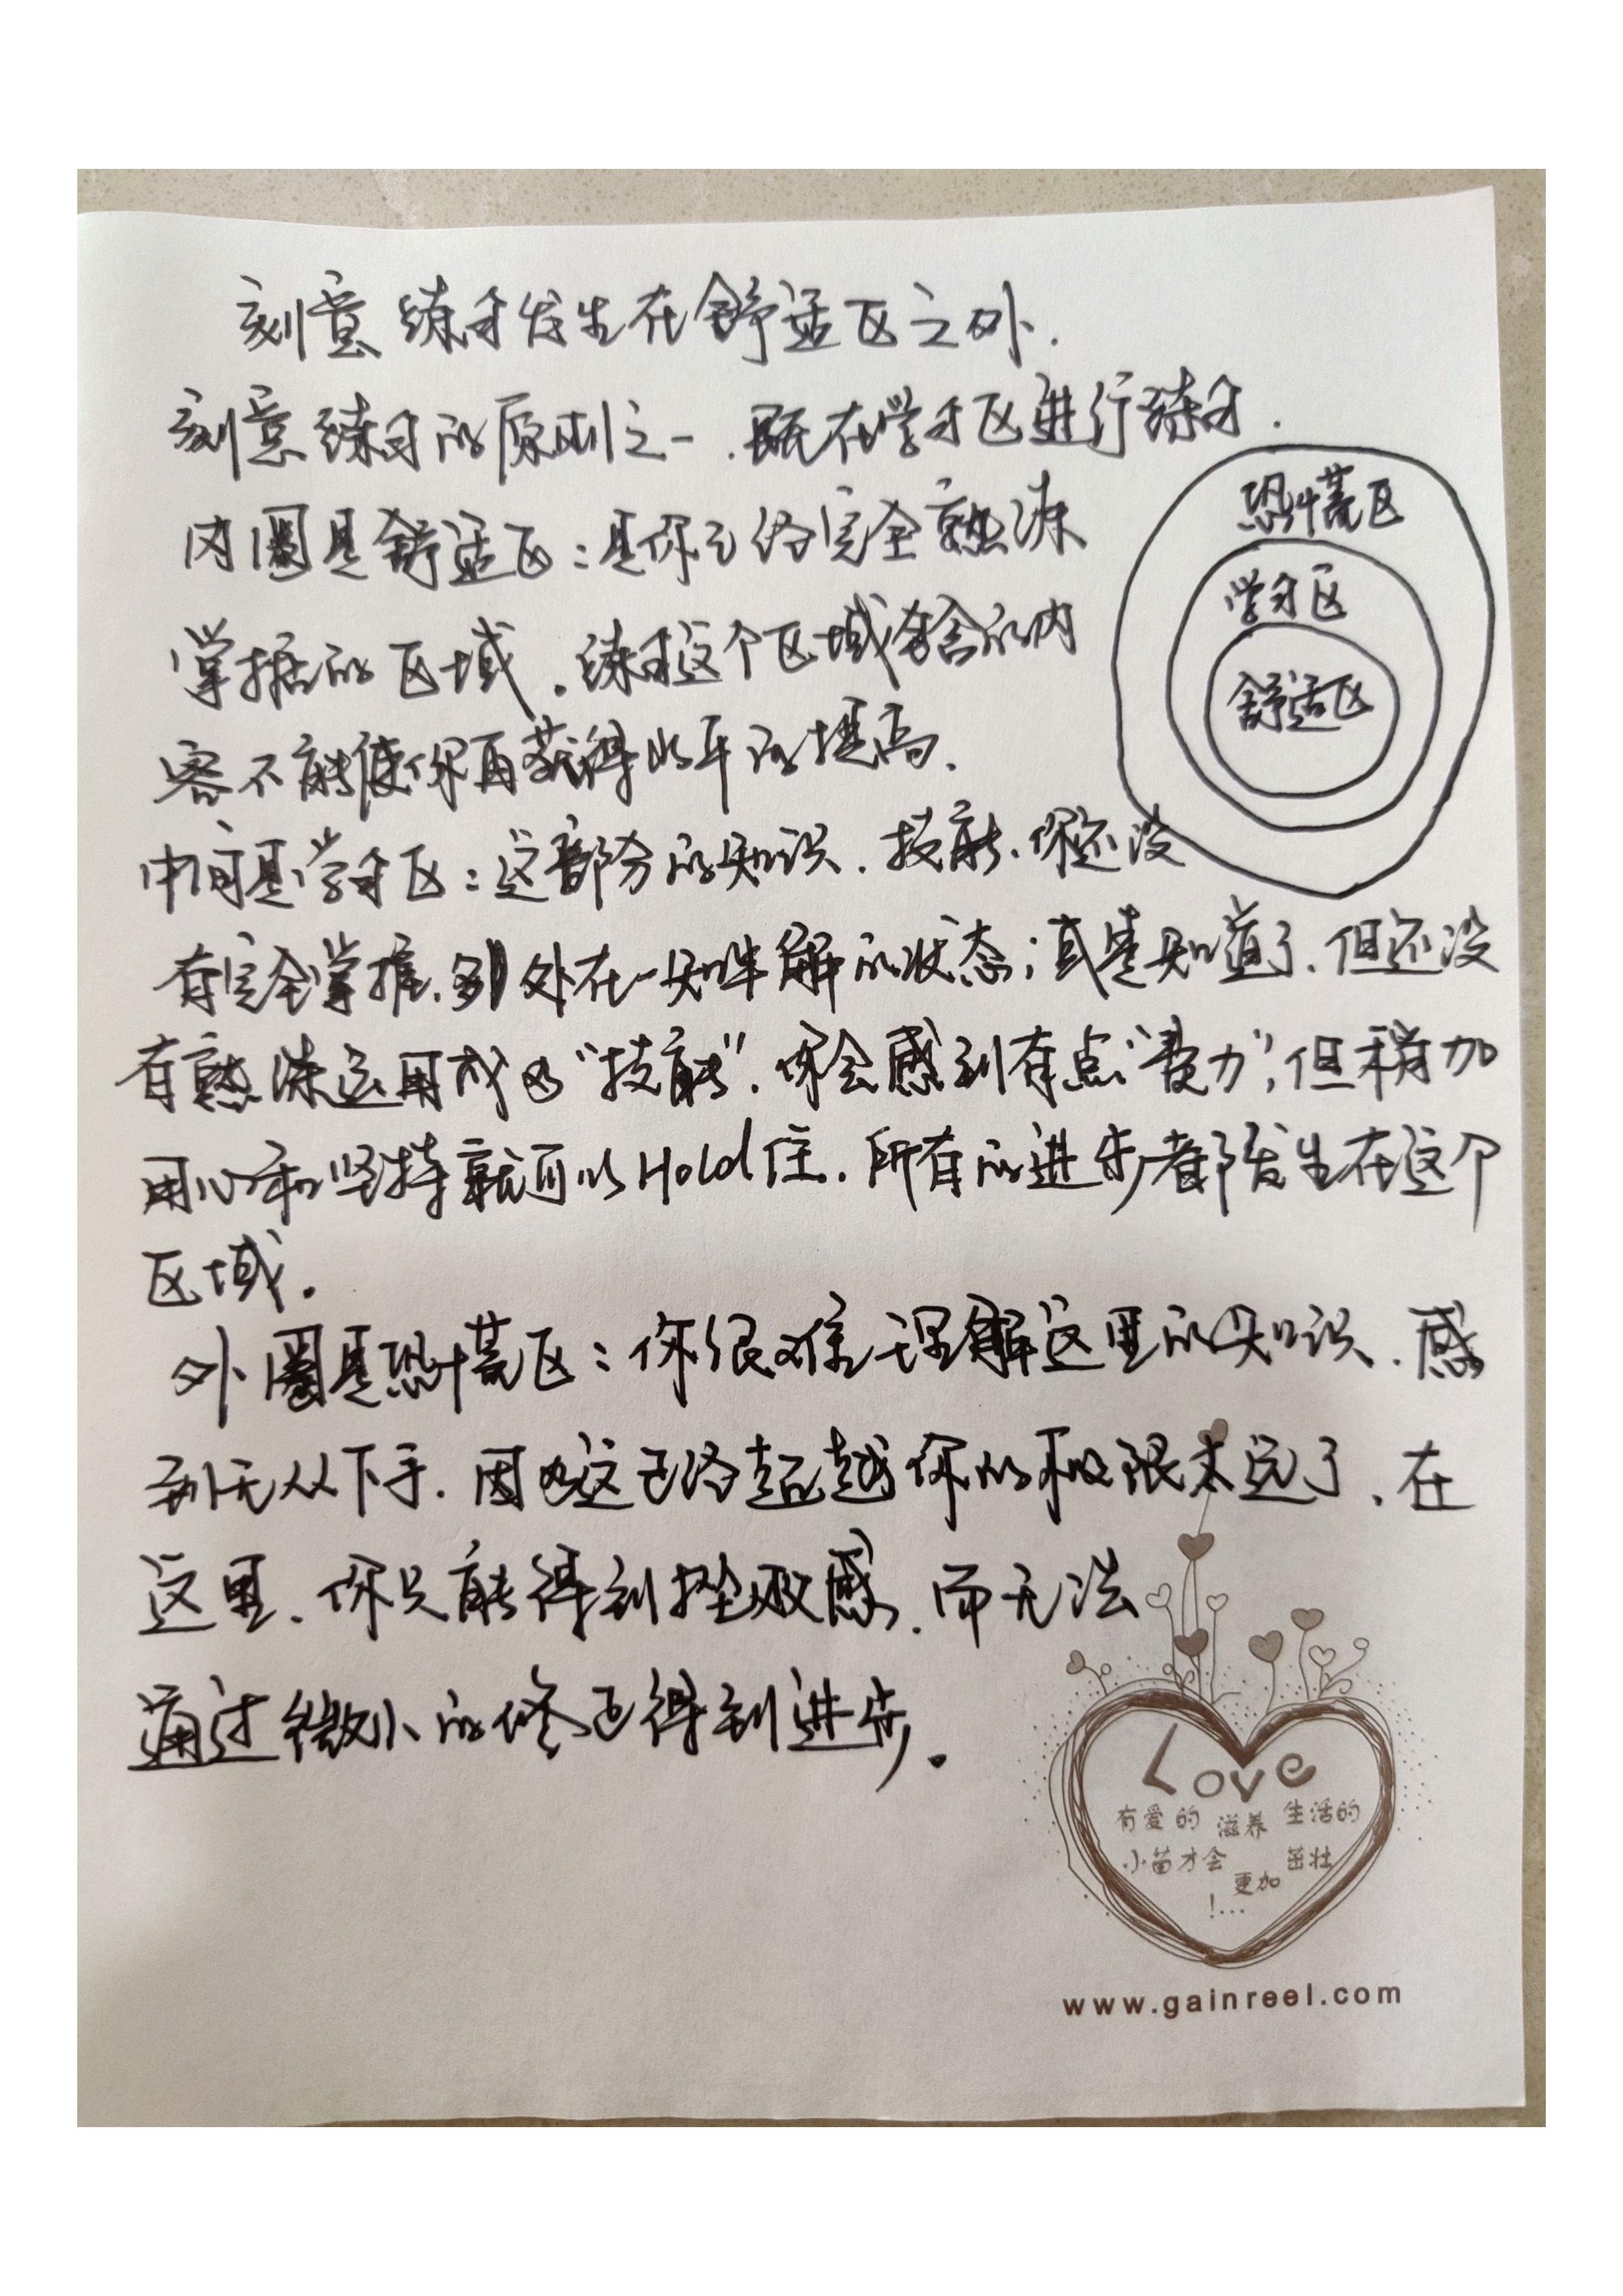 刻意练习发生在舒适区之外.
刻意练习的原则之一.既在学习区进行练习.
内圈是舒适区:是你已经完全熟练
掌握的区域.练习这个区域包含的内
容不能使你再获得水平的提高.
中间是学习区:这部分的知识.技能.你还没
有完全掌握.处在一知半解的状态;或是知道了.但还没
有熟练运用成为“技能”.你会感到有点“费力”,但稍加
用心和坚持就可以Hold住.所有的进步都发生在这个
区域.
外圈是恐慌区:你很难理解这里的知识.感
到无从下手.因为这已经超越你的极限太远了.在
这里.你只能得到挫败感.而无法
通过微小的修正得到进步.
恐慌区
学习区
舒适区
Love
有爱的 滋养 生活的
小苗才会 更加 茁壮
!...
www.gainreel.com